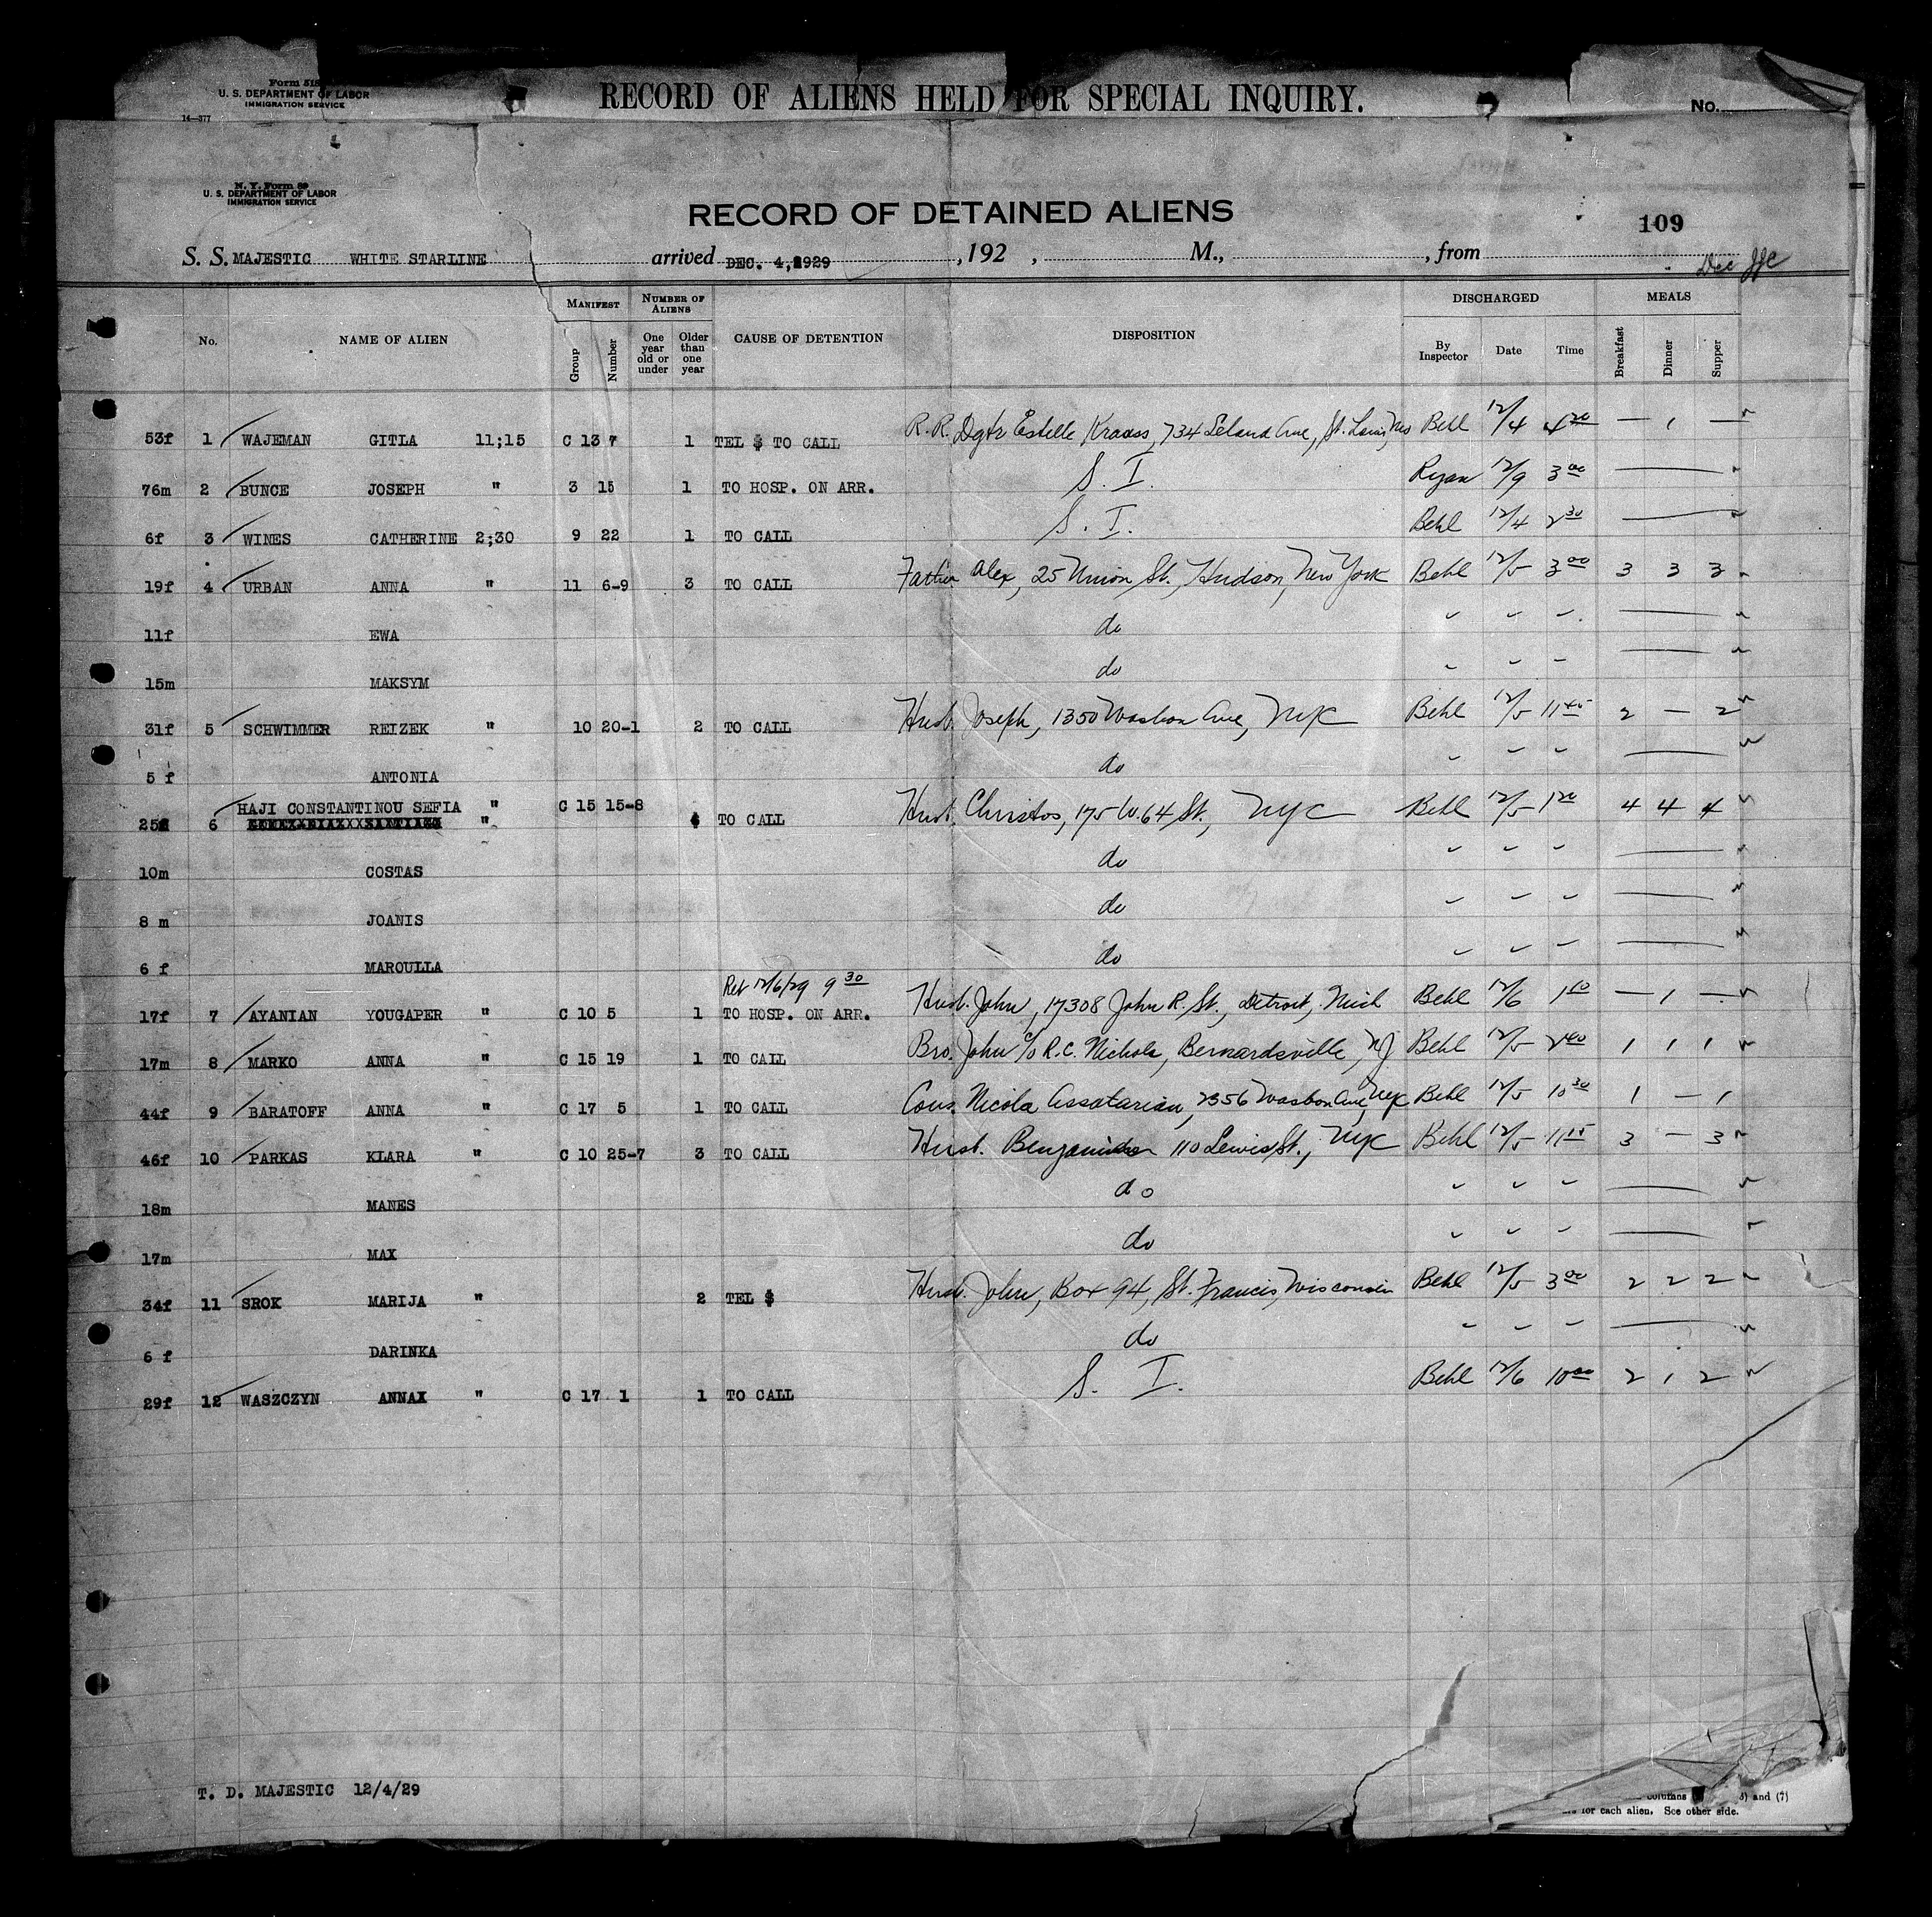 Form 518
U. S. DEPARTMENT OF LABOR
IMMIGRATION SERVICE
14—377
RECORD OF ALIENS HELD FOR SPECIAL INQUIRY.
No.
N. Y. Form 89
U. S. DEPARTMENT OF LABOR
IMMIGRATION SERVICE
RECORD OF DETAINED ALIENS
109
S. S. MAJESTIC WHITE STARLINE arrived DEC. 4, 1929, 192 , M., , from
Dec
No. NAME OF ALIEN MANIFEST Group Number NUMBER OF ALIENS One year old or under Older than one year CAUSE OF DETENTION DISPOSITION DISCHARGED By Inspector Date Time MEALS Breakfast Dinner Supper
53f 1 WAJEMAN GITLA 11;15 C 13 7 1 TEL $ TO CALL R.R. Dgtr Estelle Krauss, 734 Leland Ave, St. Louis, Mo Behl 12/4 4 20 — 1 —
76m 2 BUNCE JOSEPH " 3 15 1 TO HOSP. ON ARR. S. I. Ryan 12/9 3 00
6f 3 WINES CATHERINE 2;30 9 22 1 TO CALL S. I. Behl 12/4 2 30
19f 4 URBAN ANNA " 11 6-9 3 TO CALL Father Alex, 25 Union St., Hudson, New York Behl 12/5 3 00 3 3 3
11f EWA do " " "
15m MAKSYM do " " "
31f 5 SCHWIMMER REIZEK " 10 20-1 2 TO CALL Husb. Joseph, 1350 Washon Ave, NYC Behl 12/5 11 45 2 — 2
5 f ANTONIA do " " "
HAJI CONSTANTINOU SEFIA " C 15 15-8
25f 6 " 4 TO CALL Husb. Christos, 175 W. 64 St., NYC Behl 12/5 1 20 4 4 4
10m COSTAS do " " "
8 m JOANIS do " " "
6 f MAROULLA do " " "
Ret 12/6/29 9 30
17f 7 AYANIAN YOUGAPER " C 10 5 1 TO HOSP. ON ARR. Husb. John, 17308 John R. St., Detroit, Mich Behl 12/6 1 10 — 1 —
17m 8 MARKO ANNA " C 15 19 1 TO CALL Bro. John c/o R.C. Nichols, Bernardsville, NJ Behl 12/5 2 40 1 1 1
44f 9 BARATOFF ANNA " C 17 5 1 TO CALL Cous. Nicola Assatarian, 2356 Washon Ave, NYC Behl 12/5 10 30 1 — 1
46f 10 PARKAS KLARA " C 10 25-7 3 TO CALL Husb. Benjamin 110 Lewis St., NYC Behl 12/5 11 15 3 — 3
18m MANES do " " "
17m MAX do " " "
34f 11 SROK MARIJA " 2 TEL $ Husb. John, Box 94, St. Francis, Wisconsin Behl 12/5 3 00 2 2 2
6 f DARINKA do " " "
29f 12 WASZCZYN ANNAX " C 17 1 1 TO CALL S. I. Behl 12/6 10 00 2 1 2
T. D. MAJESTIC 12/4/29
columns 3) and (7)
for each alien. See other side.